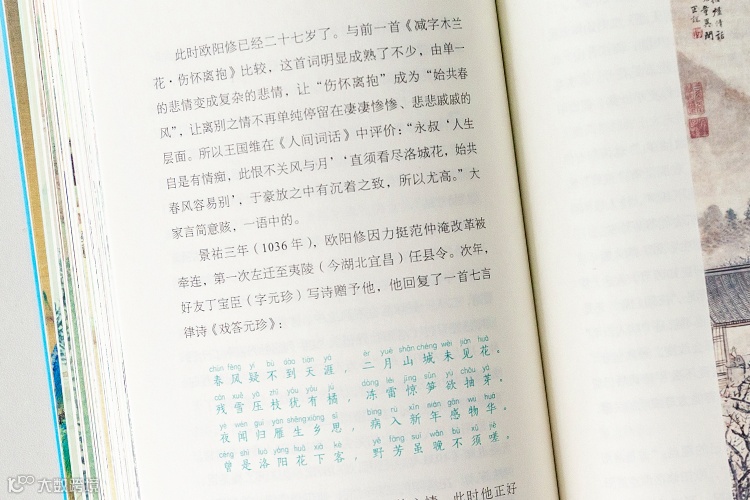 此时欧阳修已经二十七岁了。与前一首《减字木兰
花·伤怀离抱》比较，这首词明显成熟了不少，由单一
的悲情变成复杂的悲情，让“伤怀离抱”成为“始共春
风”，让离别之情不再单纯停留在凄凄惨惨、悲悲戚戚的
层面。所以王国维在《人间词话》中评价：“永叔‘人生
自是有情痴，此恨不关风与月’‘直须看尽洛城花，始共
春风容易别’，于豪放之中有沉着之致，所以尤高。”大
家言简意赅，一语中的。
景祐三年（1036年），欧阳修因力挺范仲淹改革被
牵连，第一次左迁至夷陵（今湖北宜昌）任县令。次年，
好友丁宝臣（字元珍）写诗赠予他，他回复了一首七言
律诗《戏答元珍》：
chūn fēng yí bú dào tiān yá èr yuè shān chéng wèi jiàn huā
春风疑不到天涯，二月山城未见花。
cán xuě yā zhī yóu yǒu jú dòng léi jīng sǔn yù chōu yá
残雪压枝犹有橘，冻雷惊笋欲抽芽。
yè wén guī yàn shēng xiāng sī bìng rù xīn nián gǎn wù huá
夜闻归雁生乡思，病入新年感物华。
céng shì luò yáng huā xià kè yě fāng suī wǎn bù xū jiē
曾是洛阳花下客，野芳虽晚不须嗟。
心情，此时他正好
大数跨境